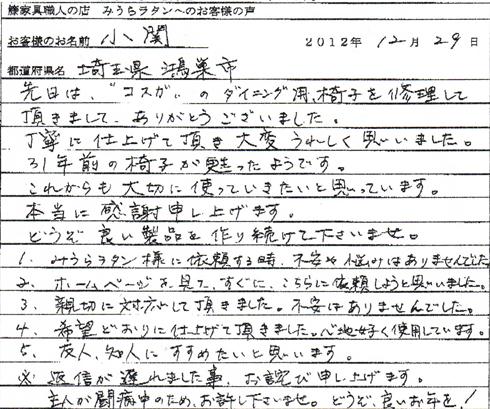 籐家具職人の店　みうらラタンへのお客様の声
お客様のお名前　小関　2012年12月29日
都道府県名　埼玉県鴻巣市
先日は、"コスガ"のダイニング用椅子を修理して
頂きまして、ありがとうございました。
丁寧に仕上げて頂き大変うれしく思いました。
31年前の椅子が甦ったようです。
これからも大切に使っていきたいと思っています。
本当に感謝申し上げます。
どうぞ良い製品を作り続けて下さいませ。
1. みうらラタン様に依頼する時、不安や悩みはありませんでした。
2. ホームページを見て、すぐに、こちらに依頼しようと思いました。
3. 親切に対応して頂きました。不安はありませんでした。
4. 希望どおりに仕上げて頂きました。心地好く使用しています。
5. 友人、知人にすすめたいと思います。
※ 返信が遅れました事、お詫び申し上げます。
主人が闘病中のため、お許し下さいませ。どうぞ、良いお年を！